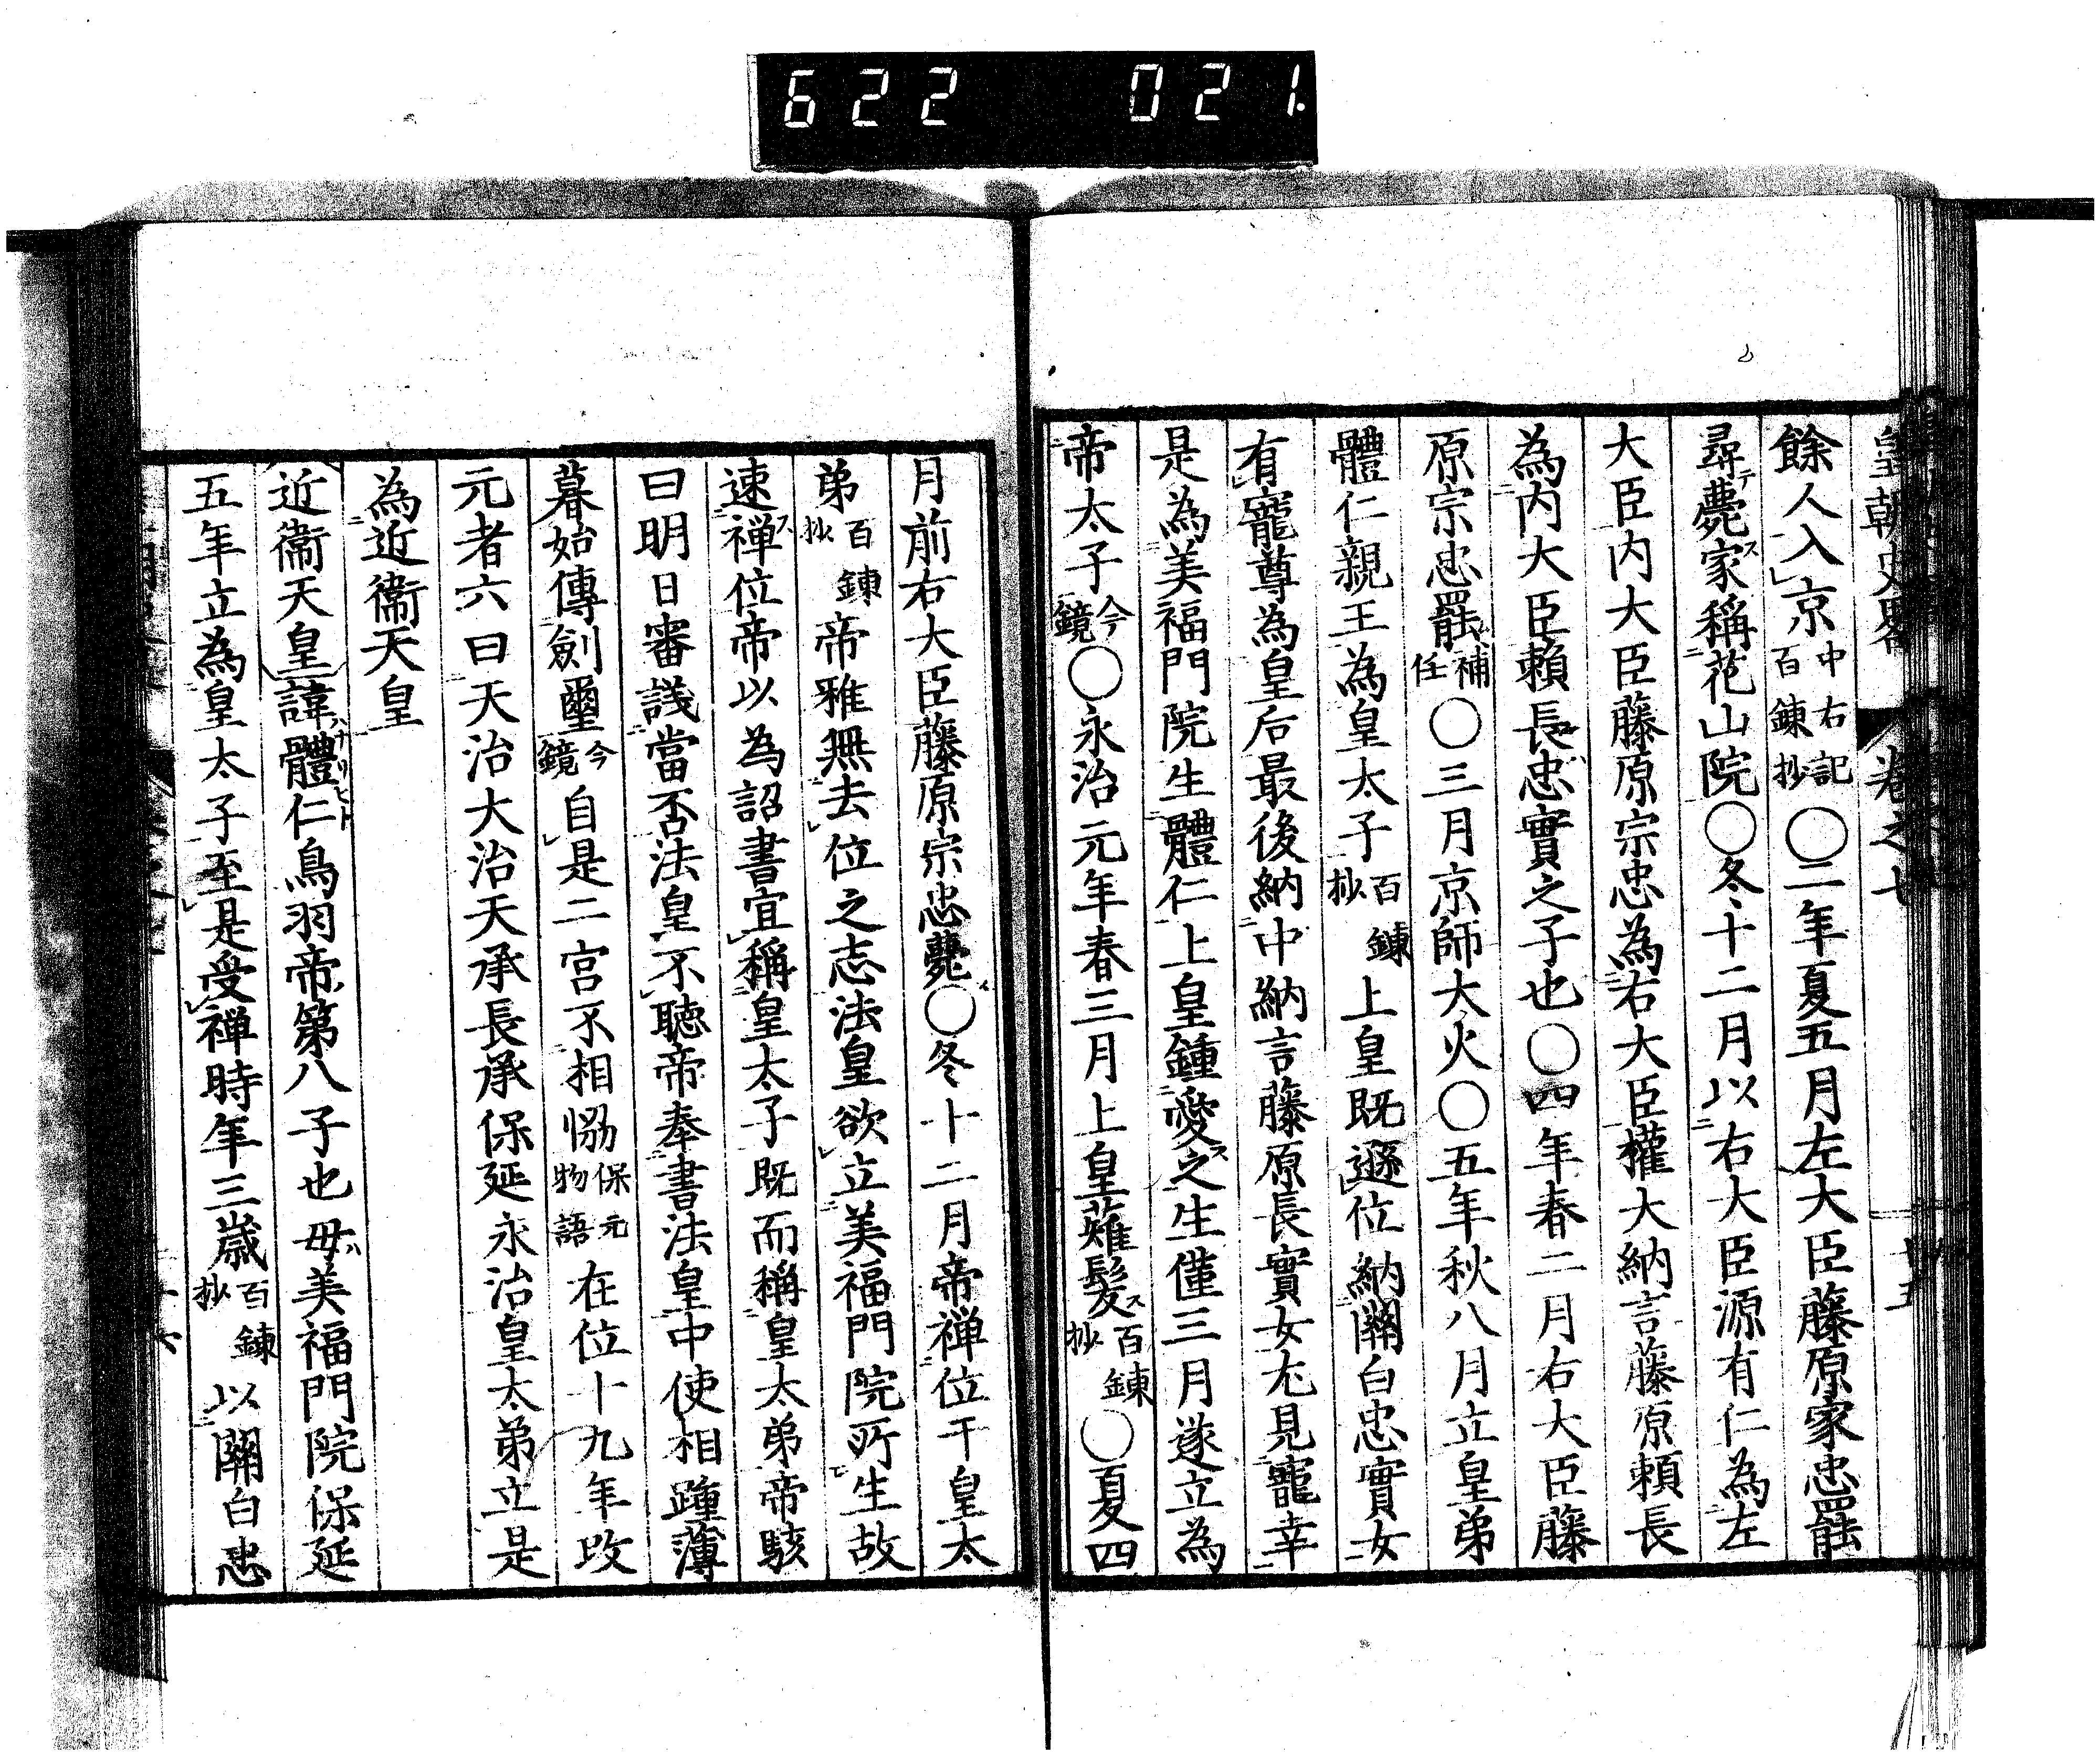 622 021.
皇朝史略 卷之七
餘人入京中右記百鍊抄〇二年夏五月左大臣藤原家忠罷
尋薨家稱花山院〇冬十二月以右大臣源有仁為左
大臣内大臣藤原宗忠為右大臣權大納言藤原頼長
為内大臣頼長忠實之子也〇四年春二月右大臣藤
原宗忠罷補任〇三月京師大火〇五年秋八月立皇弟
體仁親王為皇太子百鍊抄上皇既遜位納關白忠實女
有寵尊為皇后最後納中納言藤原長實女尤見寵幸
是為美福門院生體仁上皇鍾愛之生僅三月遂立為
帝太子今鏡〇永治元年春三月上皇薙髮百鍊抄〇夏四
月前右大臣藤原宗忠薨〇冬十二月帝禅位于皇太
弟百鍊抄帝雅無去位之志法皇欲立美福門院所生故
速禅位帝以為詔書宜稱皇太子既而稱皇太弟帝駭
曰明日審議當否法皇不聴帝奉書法皇中使相踵薄
暮始傳劍璽今鏡自是二宮不相恊保元物語在位十九年改
元者六曰天治大治天承長承保延永治皇太弟立是
為近衞天皇
近衞天皇諱體仁鳥羽帝第八子也母美福門院保延
五年立為皇太子至是受禅時年三歳百鍊抄以關白忠